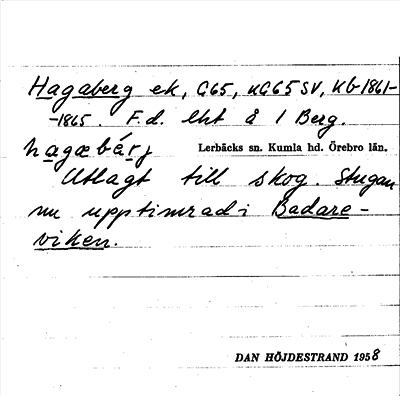 Hagaberg ek, G65, KG65SV, Kb-1861-
-1865. F.d. lht å 1 Berg.
hagæbárj Lerbäcks sn. Kumla hd. Örebro län.
Utlagt till skog. Stugan
nu upptimrad i Badare-
viken.
DAN HÖJDESTRAND 1958